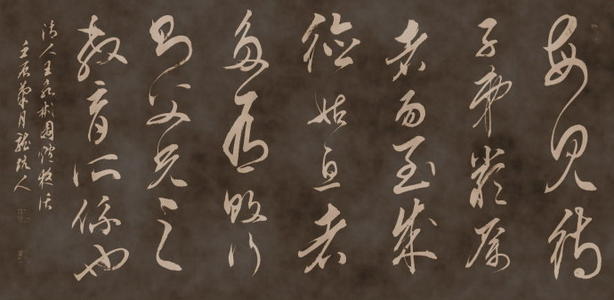 每見待
子弟嚴厲
者易至成
德姑息者
多有敗行
則父兄之
教育所係也
清人王永彬圍爐夜話
壬辰菊月龍人